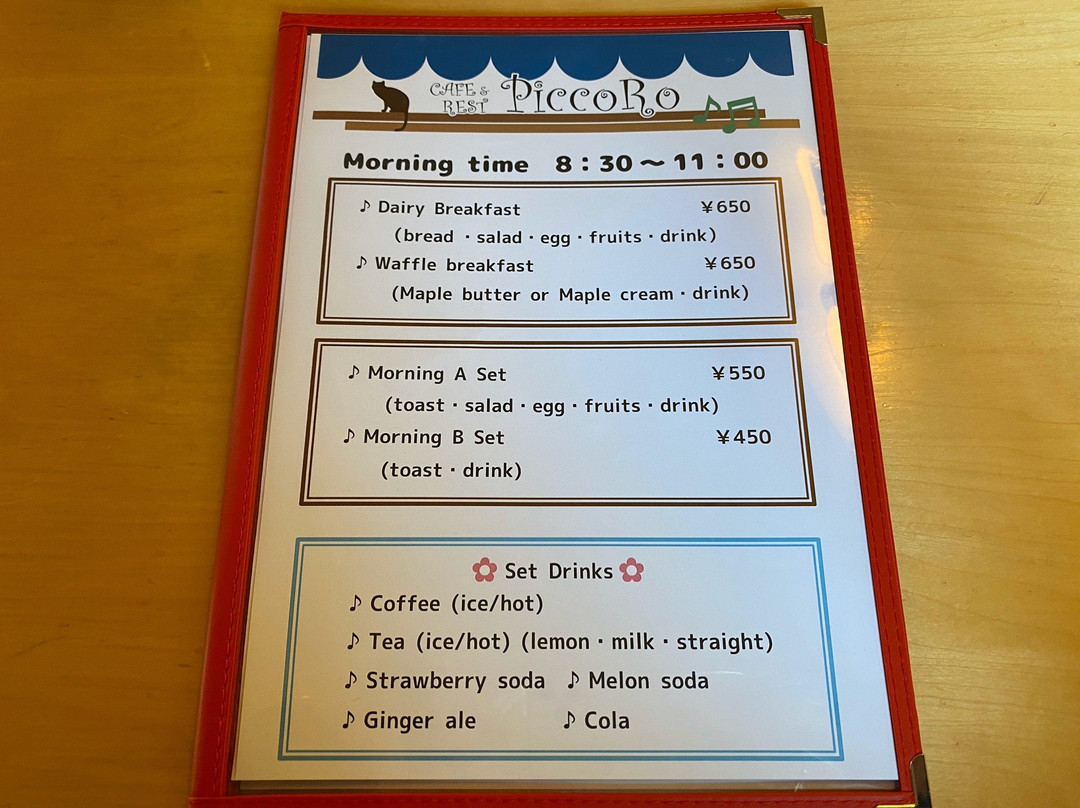 CAFE & REST PiccoRo
Morning time 8：30～11：00
♪ Dairy Breakfast ￥650
(bread ・salad・egg・fruits・drink)
♪ Waffle breakfast ￥650
(Maple butter or Maple cream・drink)
♪ Morning A Set ￥550
(toast・salad・egg・fruits・drink)
♪ Morning B Set ￥450
(toast・drink)
Set Drinks
♪ Coffee (ice/hot)
♪ Tea (ice/hot) (lemon・milk・straight)
♪ Strawberry soda ♪ Melon soda
♪ Ginger ale ♪ Cola